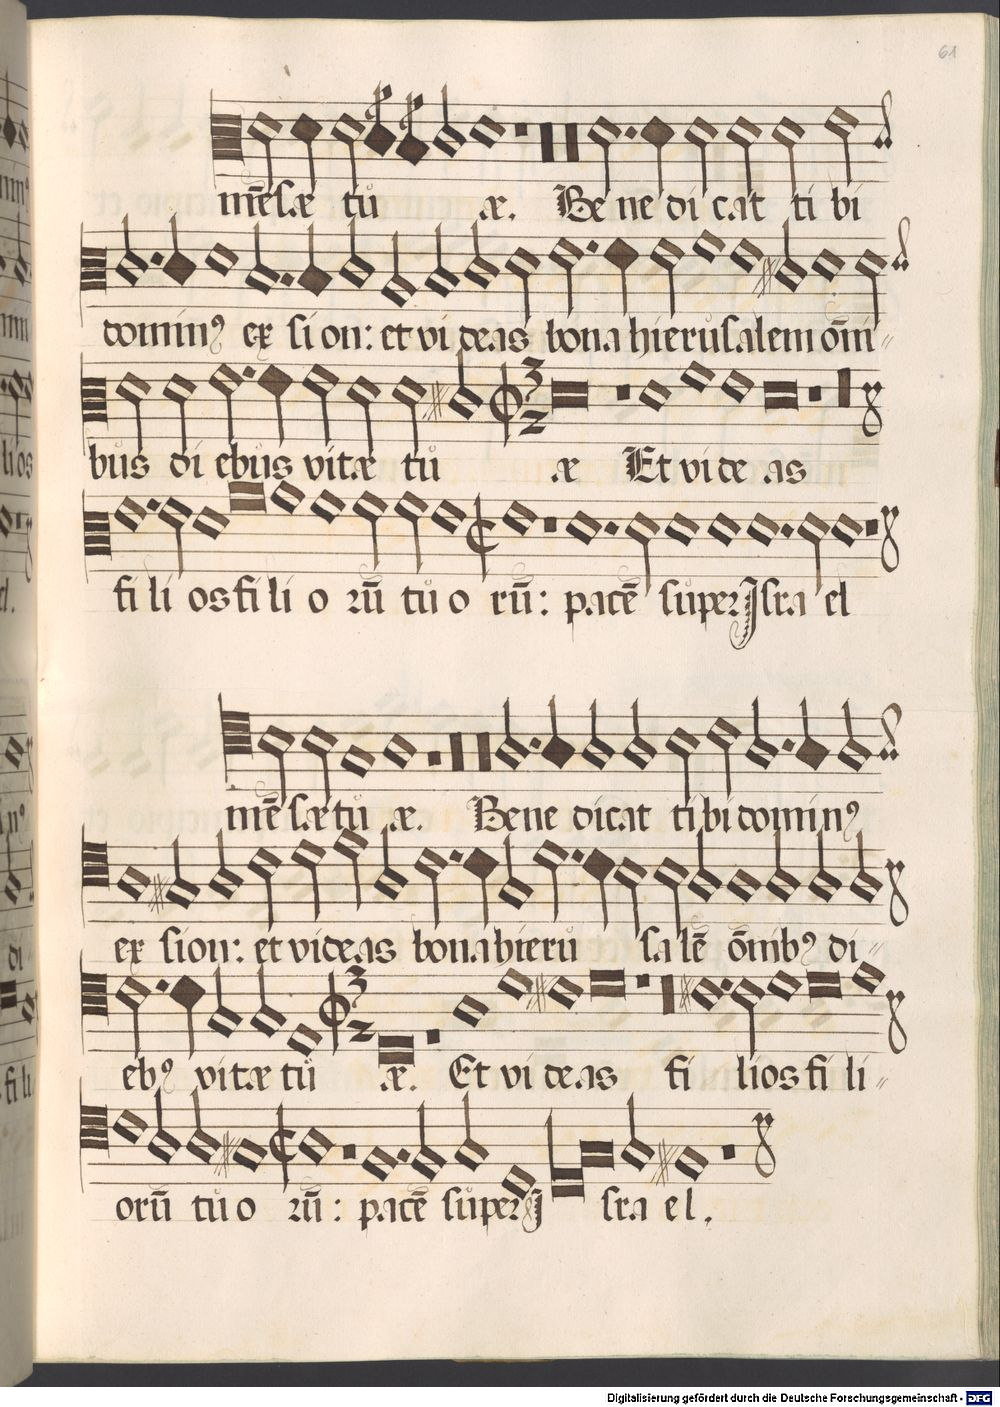 61
mēsæ tů æ. Be ne di cat ti bi
dominꝰ ex sion: et vi deas bona hierůsalem om̄i⸗
bůs di ebůs vitæ tů æ Et vi de as
fi li os fi li o rū tů o rū: pacē sůper Jsra el
mē sæ tů æ. Bene dicat ti bi dominꝰ
ex sion: et videas bona hierů salē om̄ibꝰ di⸗
ebꝰ vitæ tů æ. Et vi deas fi lios fi li⸗
orū tů o rū: pacē sůper J sra el.
Digitalisierung gefördert durch die Deutsche Forschungsgemeinschaft - DFG